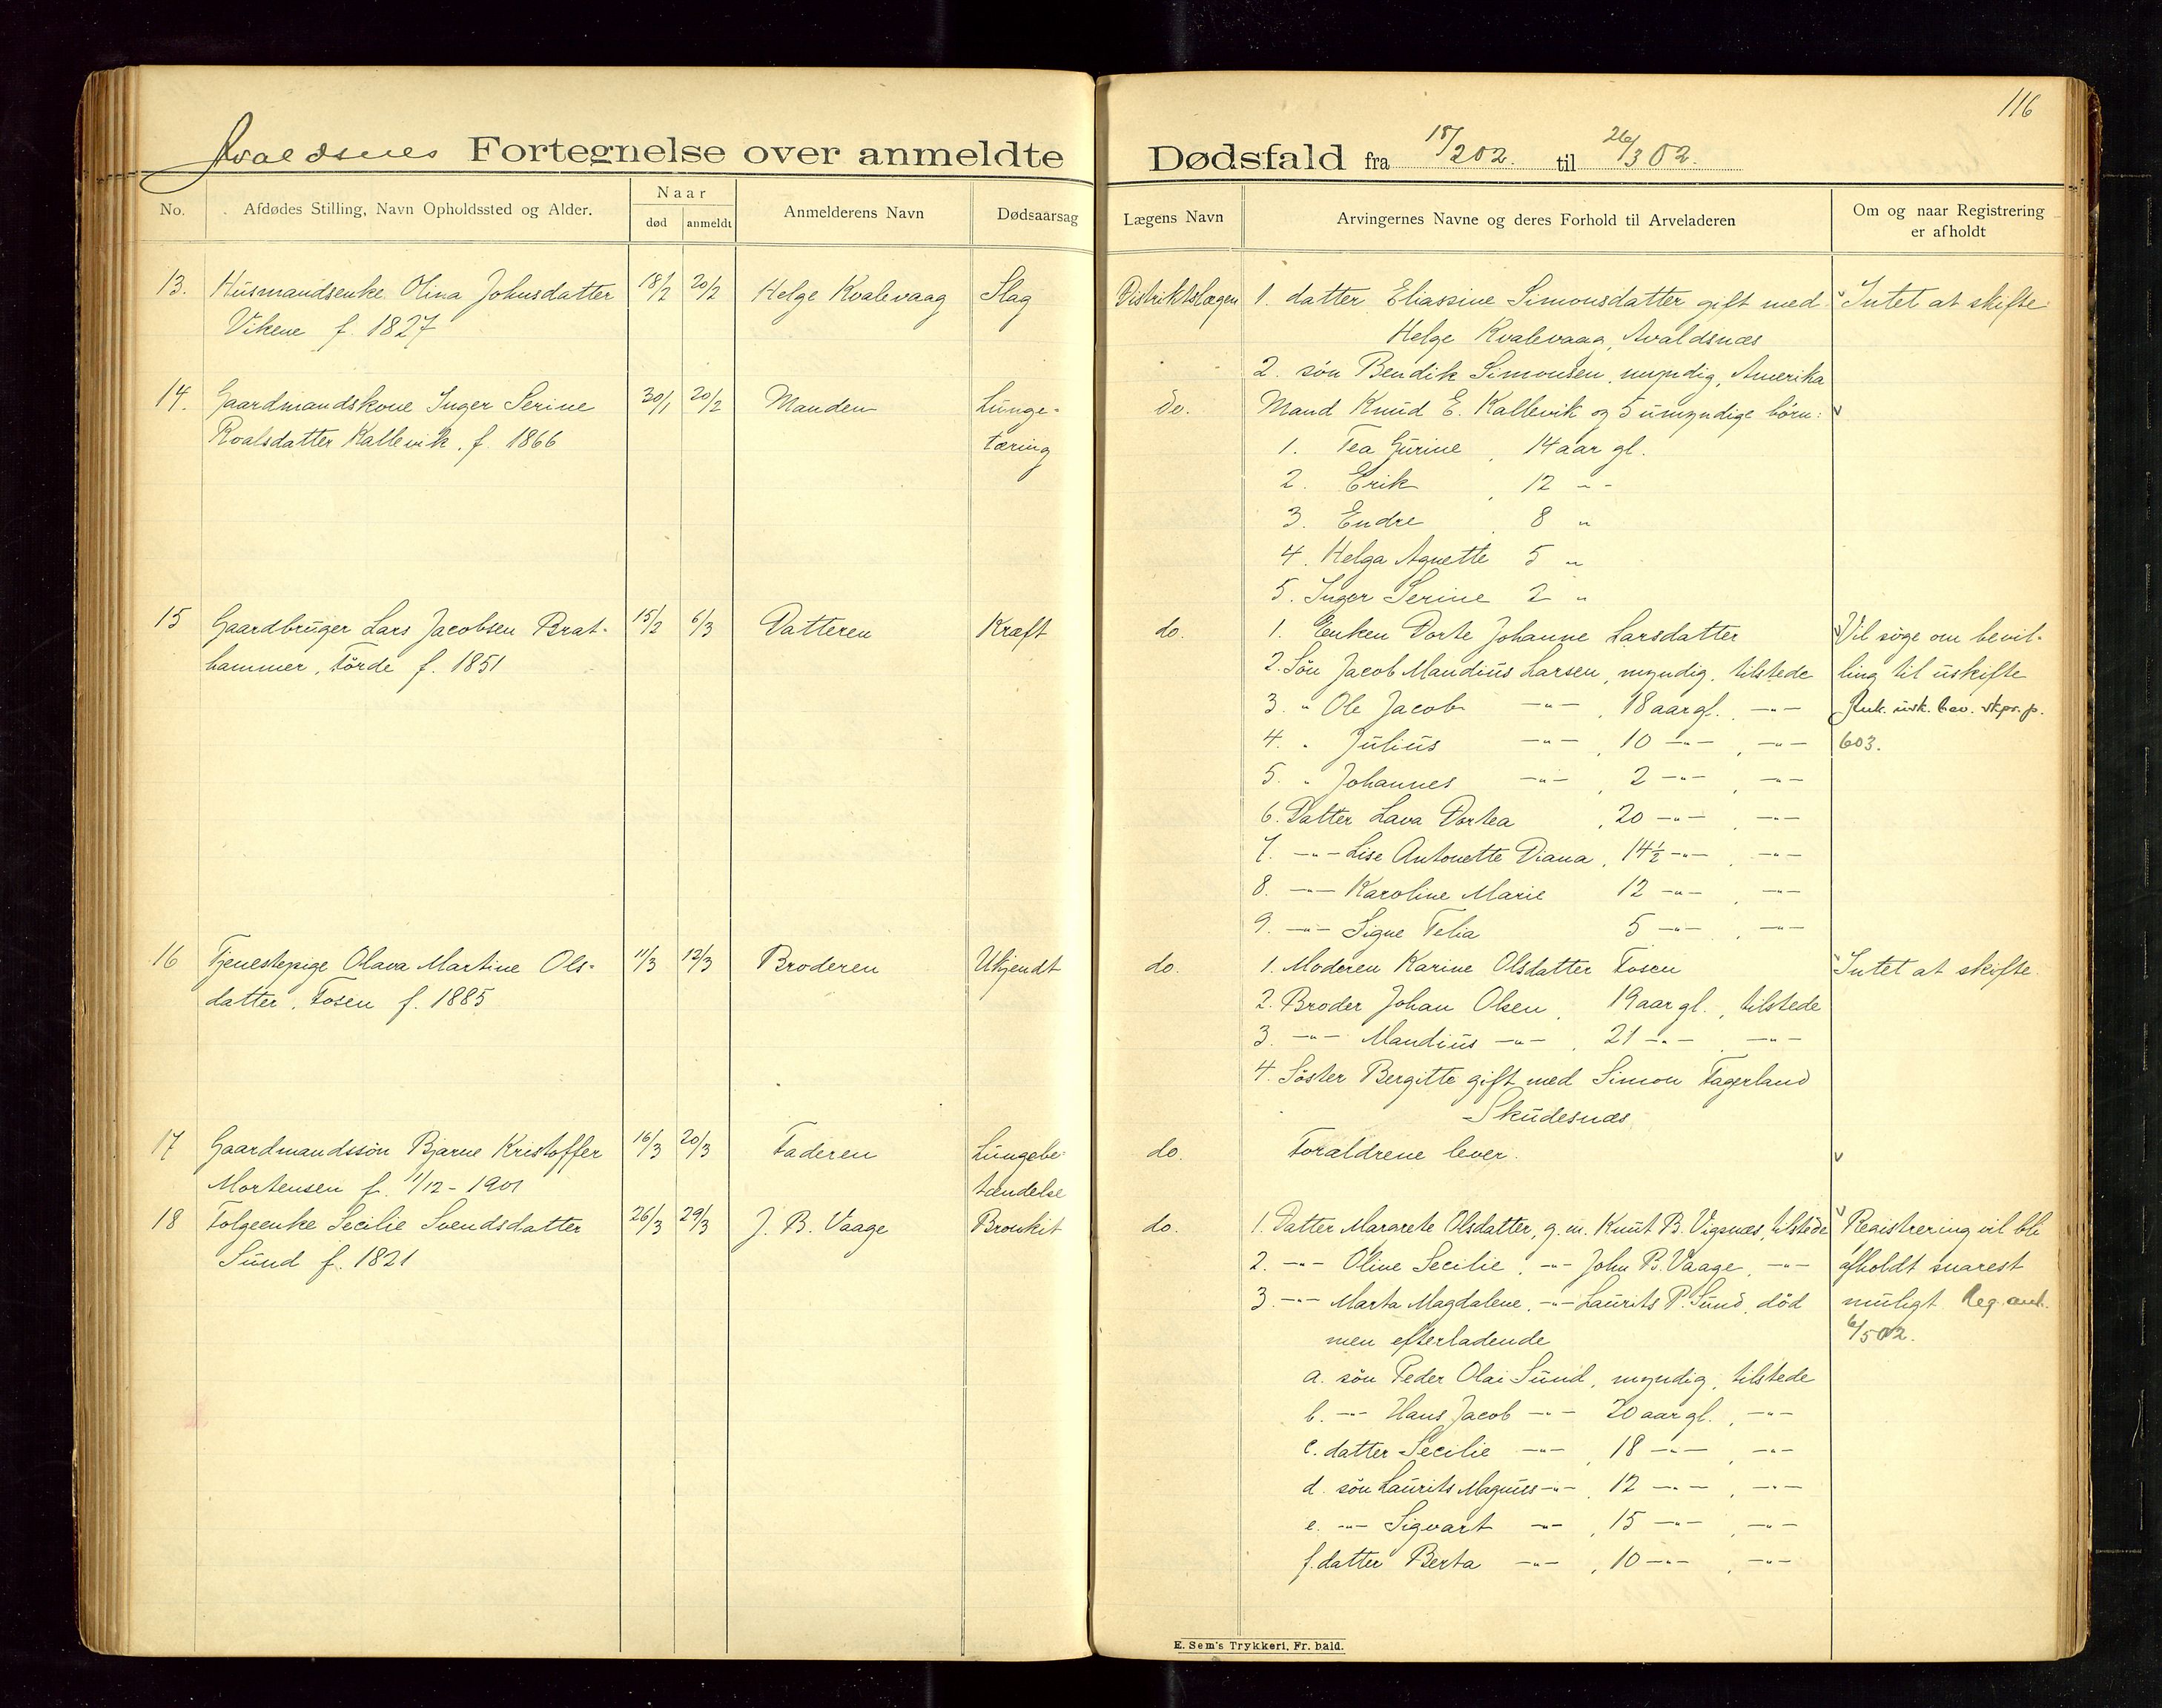 116
Avaldsnes Fortegnelse over anmeldte Dødsfald fra 18/2 02. til 26/3 02.
No. Afdødes Stilling, Navn Opholdssted og Alder. Naar død anmeldt Anmelderens Navn Dødsaarsag Lægens Navn Arvingernes Navne og deres Forhold til Arveladeren Om og naar Registrering er afholdt
13. Husmandsenke Olina Johnsdatter 18/2 20/2 Helge Kvalevaag Slag Distriktslægen 1. datter Eliassine Simonsdatter gift med Intet at skifte
Vikene f. 1827 Helge Kvalevaag, Avaldsnæs
2. søn Bendik Simonsen, myndig, Amerika
14. Gaardmandskone Inger Serine 30/1 20/2 Manden Lunge- do. Mand Knud E. Kallevik og 5 umyndige børn:
Roalsdatter Kallevik. f. 1866 tæring 1. Tea Gurine, 14 aar gl.
2. Erik, 12 - -
3. Endre, 8 "
4. Helga Agnette 5 "
5. Inger Serine 2 "
15 Gaardbruger Lars Jacobsen Brat- 15/2 6/3 Datteren Kræft do. 1. Enken Dorte Johanne Larsdatter Vil søge om bevil-
hammer, Førde f. 1851 2. Søn Jacob Mandius Larsen, myndig, tilstede ling til uskifte
3. " Ole Jacob -"- , 18 aar gl. -"- usk. bev. skpr. p.
4. " Julius -"- , 10 -"- , -"- 603.
5. " Johannes -"- , 2 -"- , -"-
6. Datter Lava Dortea , 20 -"- , -"-
7. -"- Lise Antonette Diana, 14½ -"- , -"-
8. -"- Karoline Marie 12 -"- , -"-
9. -"- Signe Felia 5 -"- , -"-
16 Tjenestepige Olava Martine Ols- 11/3 12/3 Broderen Ukjendt do. 1. Moderen Karine Olsdatter Fosen Intet at skifte
datter, Fosen f. 1885 2. Broder Johan Olsen, 19 aar gl., tilstede
3. -"- Mandius -"- , 21 -"- , -"-
4. Søster Bergitte gift med Simon Fagerland
Skudesnæs
17 Gaardmandssøn Bjarne Kristoffer 16/3 20/3 Faderen Lungebe- do. Forældrene lever.
Mortensen f. 11/12 - 1901 tændelse
18 Folgeenke Secilie Svendsdatter 26/3 29/3 J. B. Vaage Bronkit do. 1. Datter Margrete Olsdatter, g. m. Knut B. Vigsnæs, tilstede Registrering vil bli
Sund f. 1821 2. -"- Oline Secilie, -"- John B. Vaage, -"- afholdt snarest
3. -"- Marta Magdalene, -"- Laurits P. Sund, død muligt Reg. anh.
men efterladende 6/5 02.
a. søn Peder Olai Sund, myndig, tilstede
b. -"- Hans Jacob -"- 20 aar gl., -"-
c. datter Secilie -"- , 18 -"- , -"-
d. søn Laurits Magnus -"- , 12 -"- , -"-
e. -"- Sigvart -"- , 15 -"- , -"-
f. datter Berta -"- , 10 -"- , -"-
E. Sem's Trykkeri, Fr.hald.